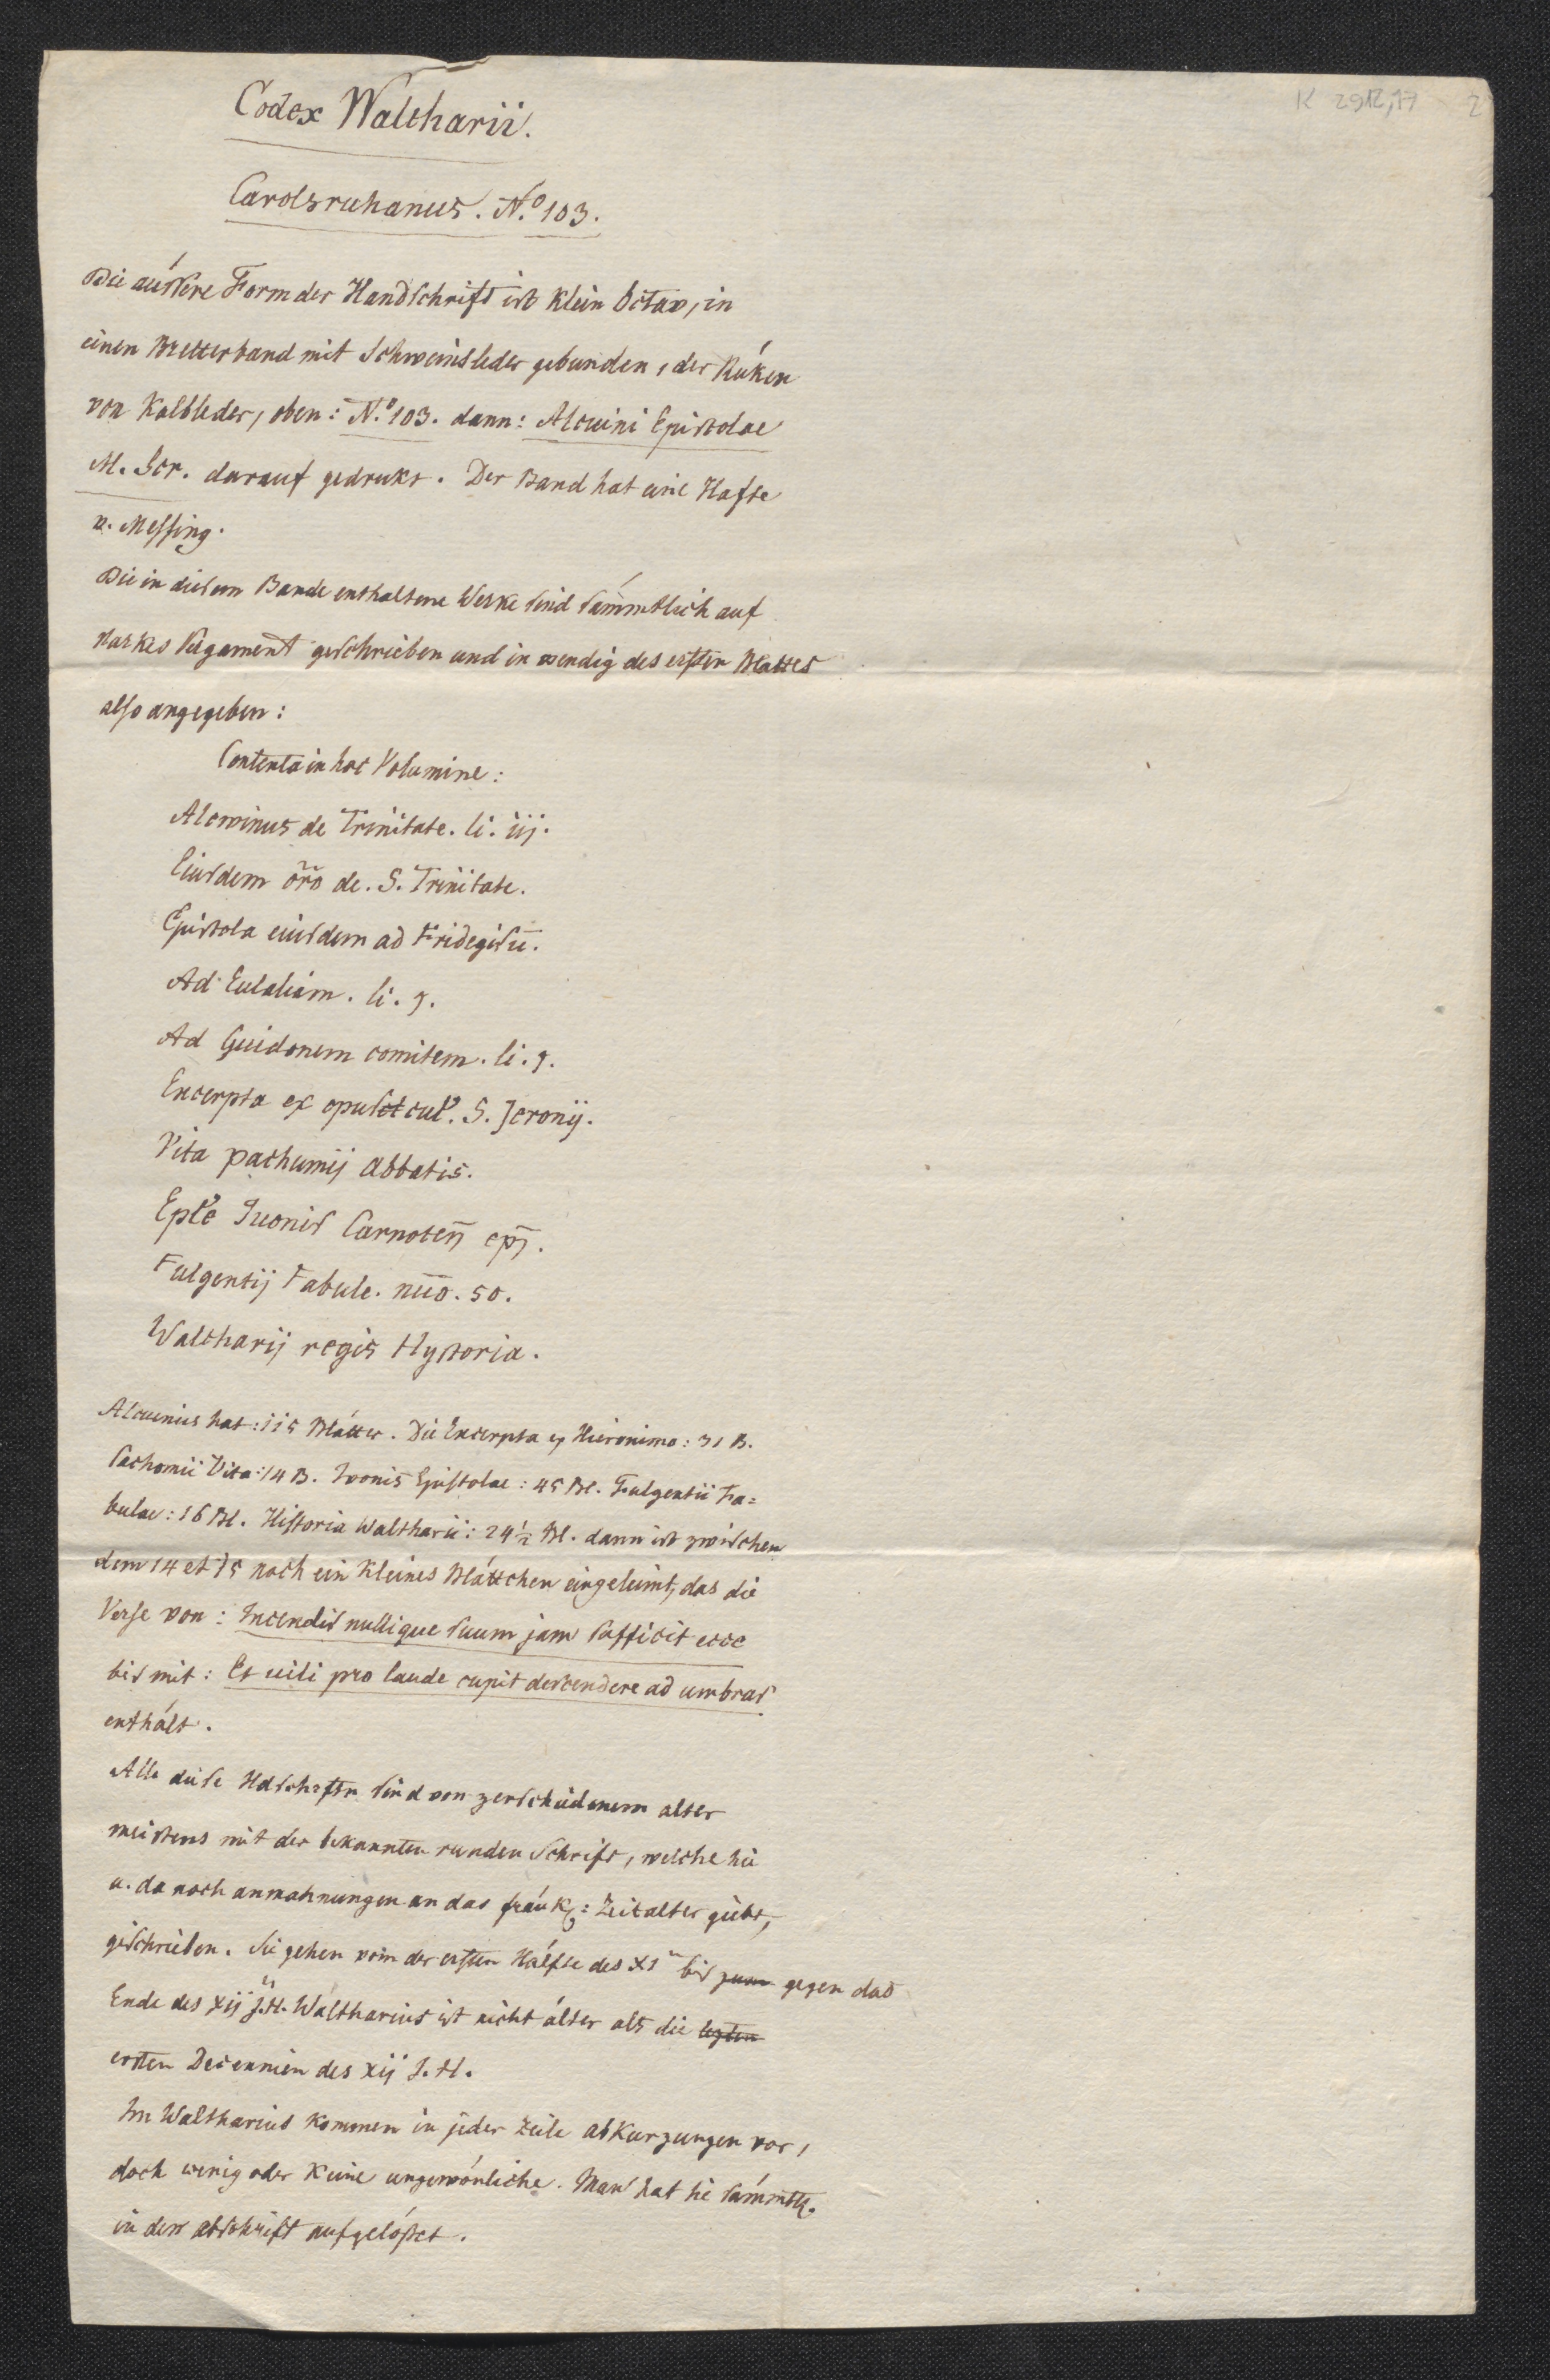 K 2912,17 2
Codex Waltharii.
Carolsruhanus. N.º 103.
Die aússere Form der Handschrift ist klein Octav, in
einen Bretterband mit Schweinsleder gebunden, der Rúken
von Kalbleder, oben: N.º 103. dann: Alcuini Epistolae
M. Scr. darauf gedrukt. Der Band hat eine Hafte
v. Messing.
Die in diesem Bande enthaltene Werke sind sámmtlich auf
starkes Pergament geschrieben und inwendig des ersten Blattes
also angegeben:
Contenta in hoc Volumine:
Alcwinus de Trinitate. li. iij.
Eiusdem or̃o de. S. Trinitate.
Epistola eiusdem ad Fridegisū.
Ad Eulaliam. li. j.
Ad Guidonem comitem. li. j.
Excerpta ex opuscul. S. Jeronij.
Vita pachumij abbatis.
Epl̃e Iuonis Carnoteñ ep̄j.
Fulgentij Fabule. nūo. 50.
Waltharij regis Hystoria.
Alcuinus hat: 115 Blátter. Die Excerpta ex Hieronimo: 31 B.
Pachomii Vita: 14 B. Ivonis Epistolae: 45 Bl. Fulgentii Fa=
bulae: 16 Bl. Historia Waltharii: 24 1/2 Bl. dann ist zwischen
dem 14 et 15 noch ein kleines Bláttchen eingeleimt, das die
Verse von: Incendis nullique suum jam sufficit ecce
bis mit: Et uili pro laude cupit descendere ad umbras
enthált.
Alle diese Hdschrften sind von zerschiedenem alter
meistens mit der bekannten runden Schrift, welche hie
u. da noch anmahnungen an das fránk: Zeitalter giebt,
geschrieben. Sie gehen von der ersten Hálfte des XIn bis zum gegen das
Ende des xijn J.H. Waltharius ist nicht álter als die lezten
ersten Decennien des xij J.H.
Im Waltharius kommen in jeder Zeile abkurzungen vor,
doch wenig oder keine ungewónliche. Man hat sie sámmtl.
in der abschrift aufgelóset.